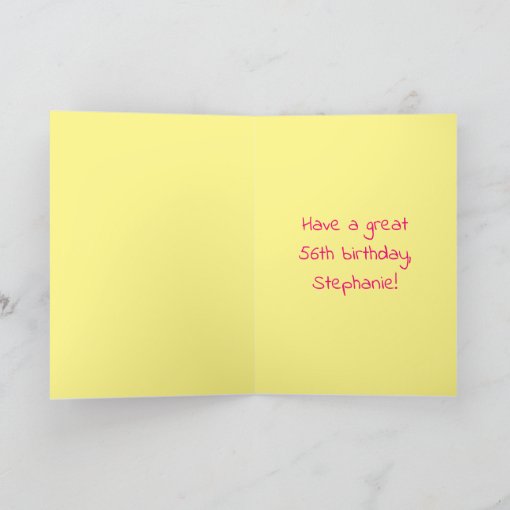 Have a great
56th birthday,
Stephanie!